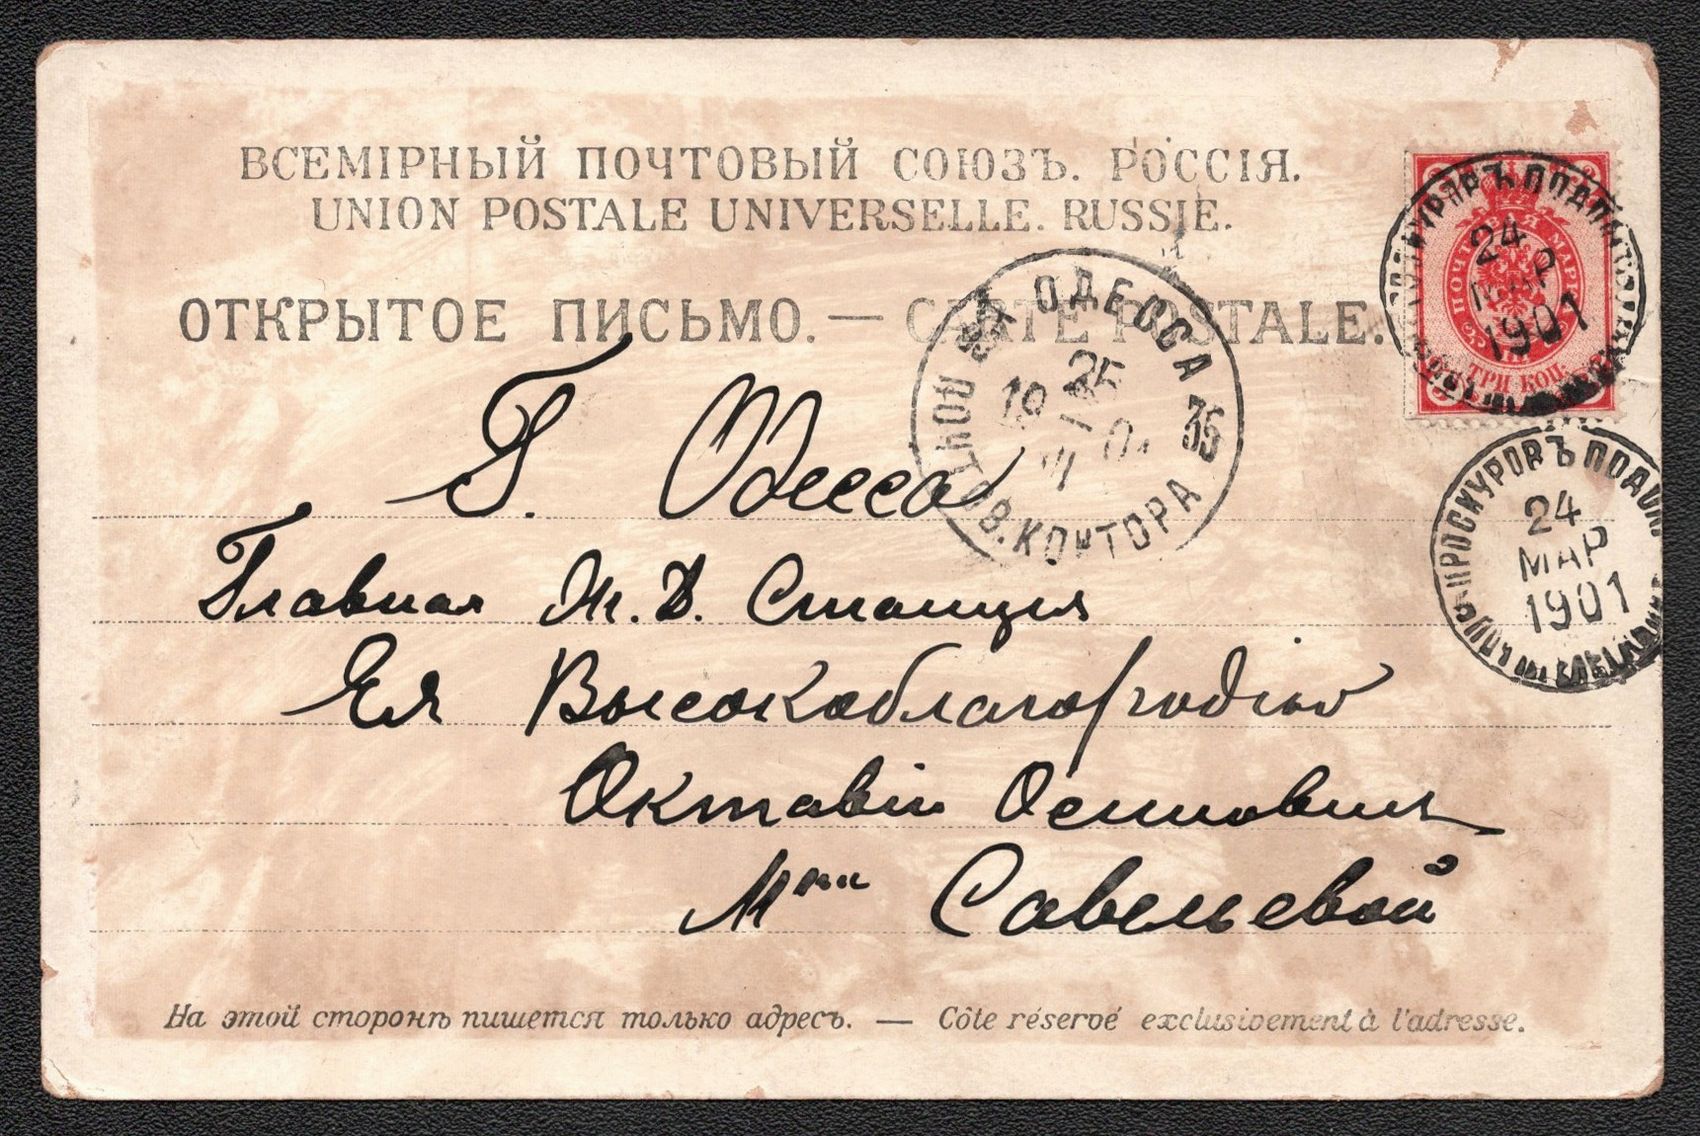 ВСЕМІРНЫЙ ПОЧТОВЫЙ СОЮЗЪ. РОССІЯ.
UNION POSTALE UNIVERSELLE. RUSSIE.
ОТКРЫТОЕ ПИСЬМО. — CARTE POSTALE.
ПОЧТОВАЯ МАРКА
ТРИ КОП.
24
МАР
1901
ОДЕССА
35
25
19 01
ГОР. ПОЧТОВ. КОНТОРА
ПРОСКУРОВЪ ПОДОЛЬСК
24
МАР
1901
Г. Одесса
Главная Ж. Д. Станція
Ея Высокоблагородію
Октавіи Осиповнѣ
Савельевой
На этой сторонѣ пишется только адресъ. — Côte réservé exclusivement à l'adresse.